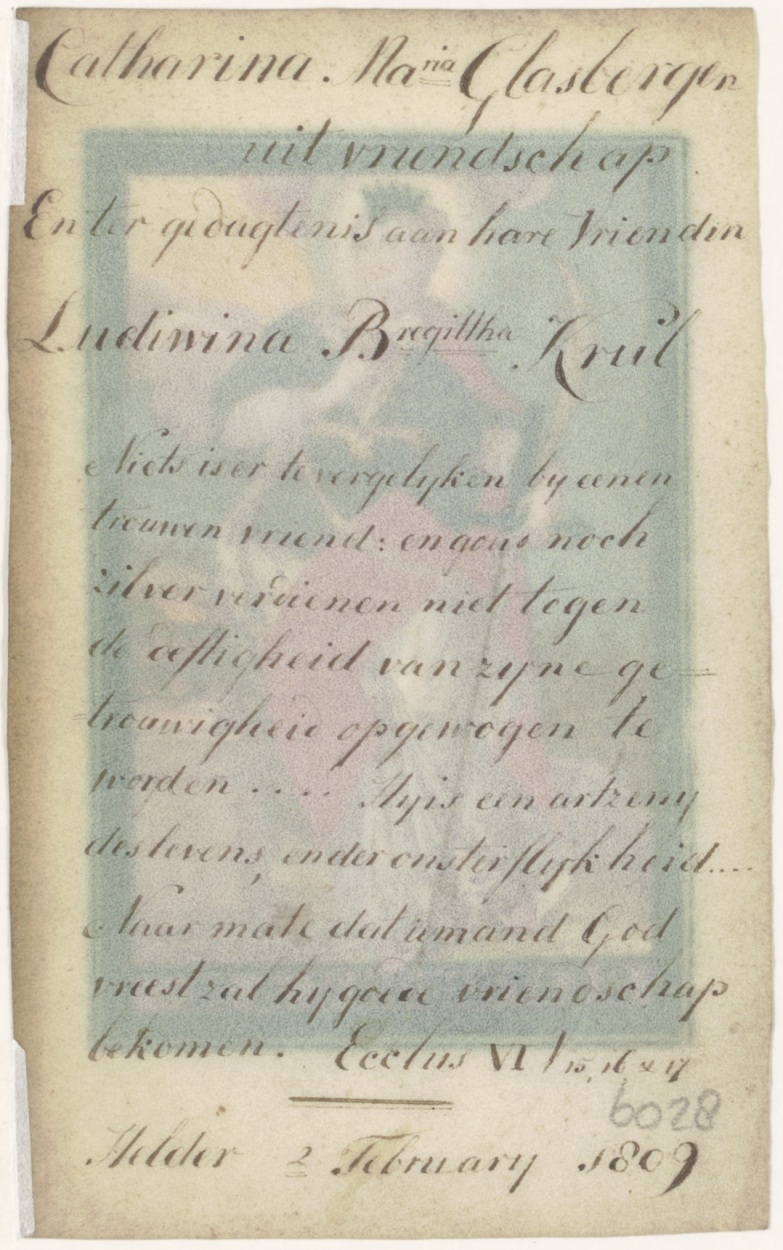 Catharina Maria Glasbergen
uit vriendschap
En ter gedagtenis aan hare Vriendin
Ludiwina Bregittha Kruil
Niets is er te vergelyken by eenen
trouwen vriend: en goud noch
zilver verdienen niet tegen
de deftigheid van zyne ge-
trouwigheid opgewogen te
worden .... Hy is een artzeny
des levens, en der onsterflykheid....
Naar mate dat iemand God
vreest zal hy goede vriendschap
bekomen. Ecclus VI V 15, 16 & 17
6028
Helder 2 February 1809